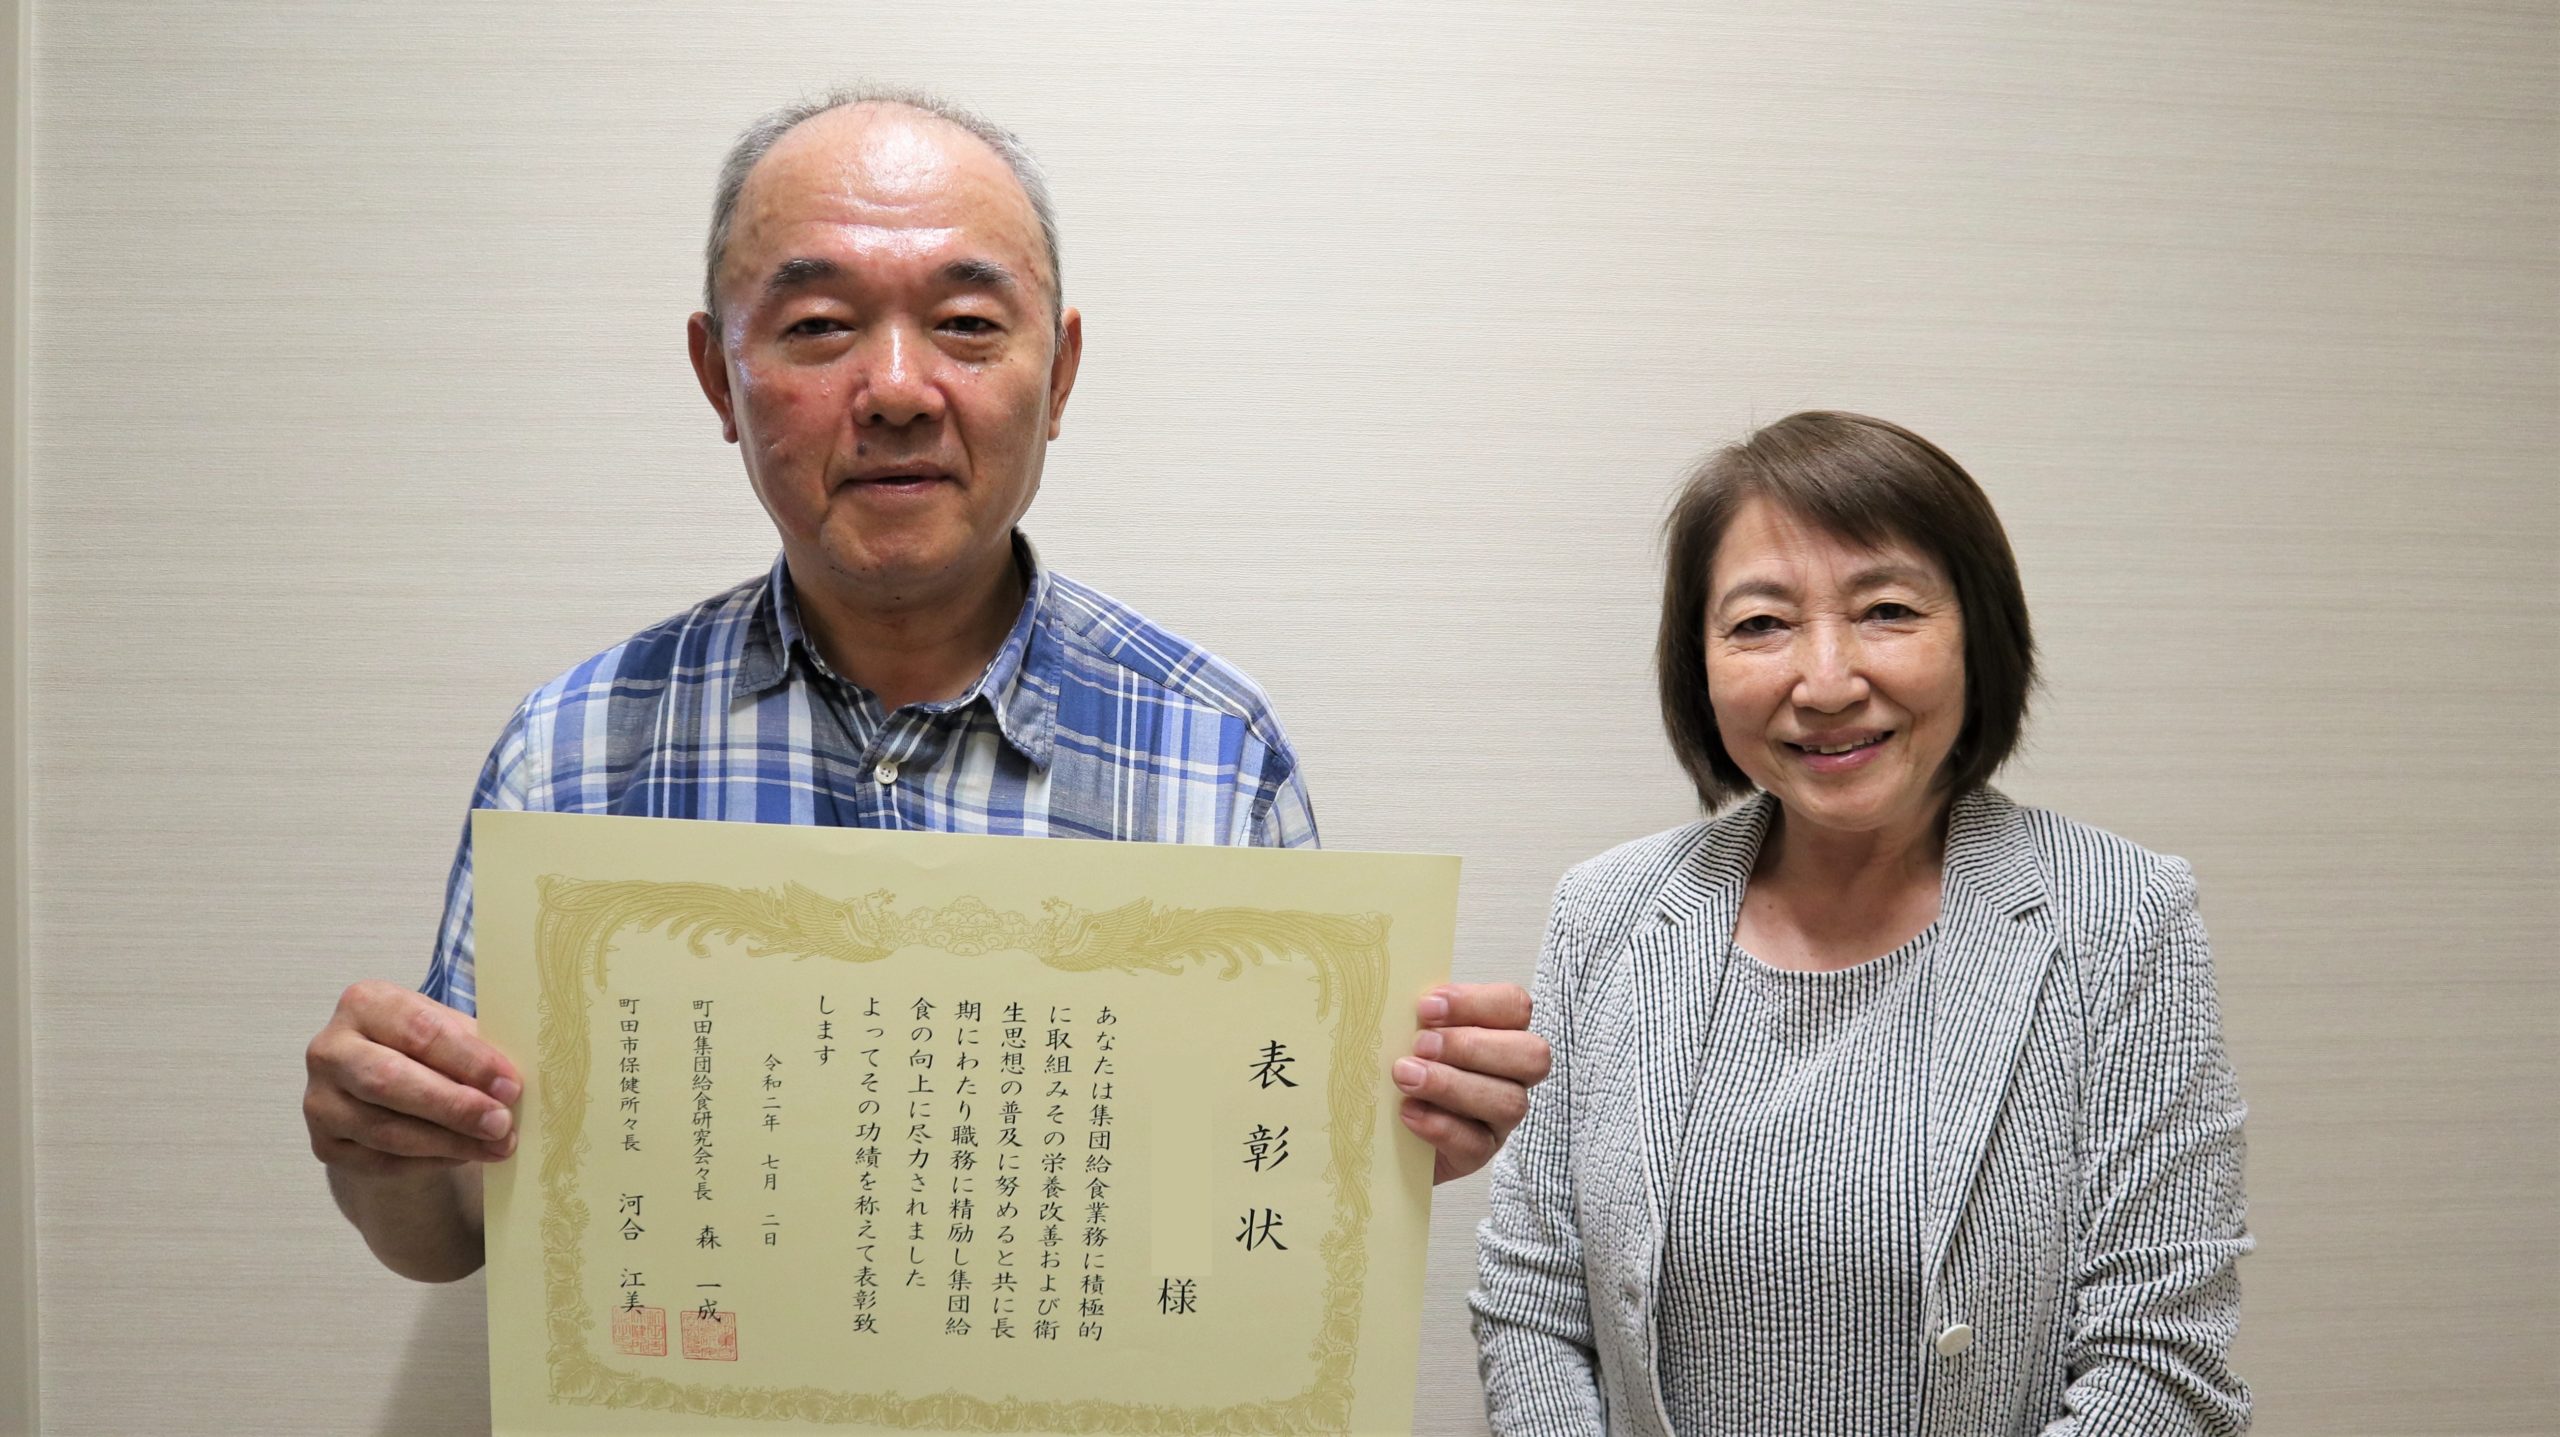 表彰状
様
あなたは集団給食業務に積極的
に取組みその栄養改善および衛
生思想の普及に努めると共に長
期にわたり職務に精励し集団給
食の向上に尽力されました
よってその功績を称えて表彰致
します
令和二年 七月 二日
町田集団給食研究会々長 森 一成
町田市保健所々長 河合 江美